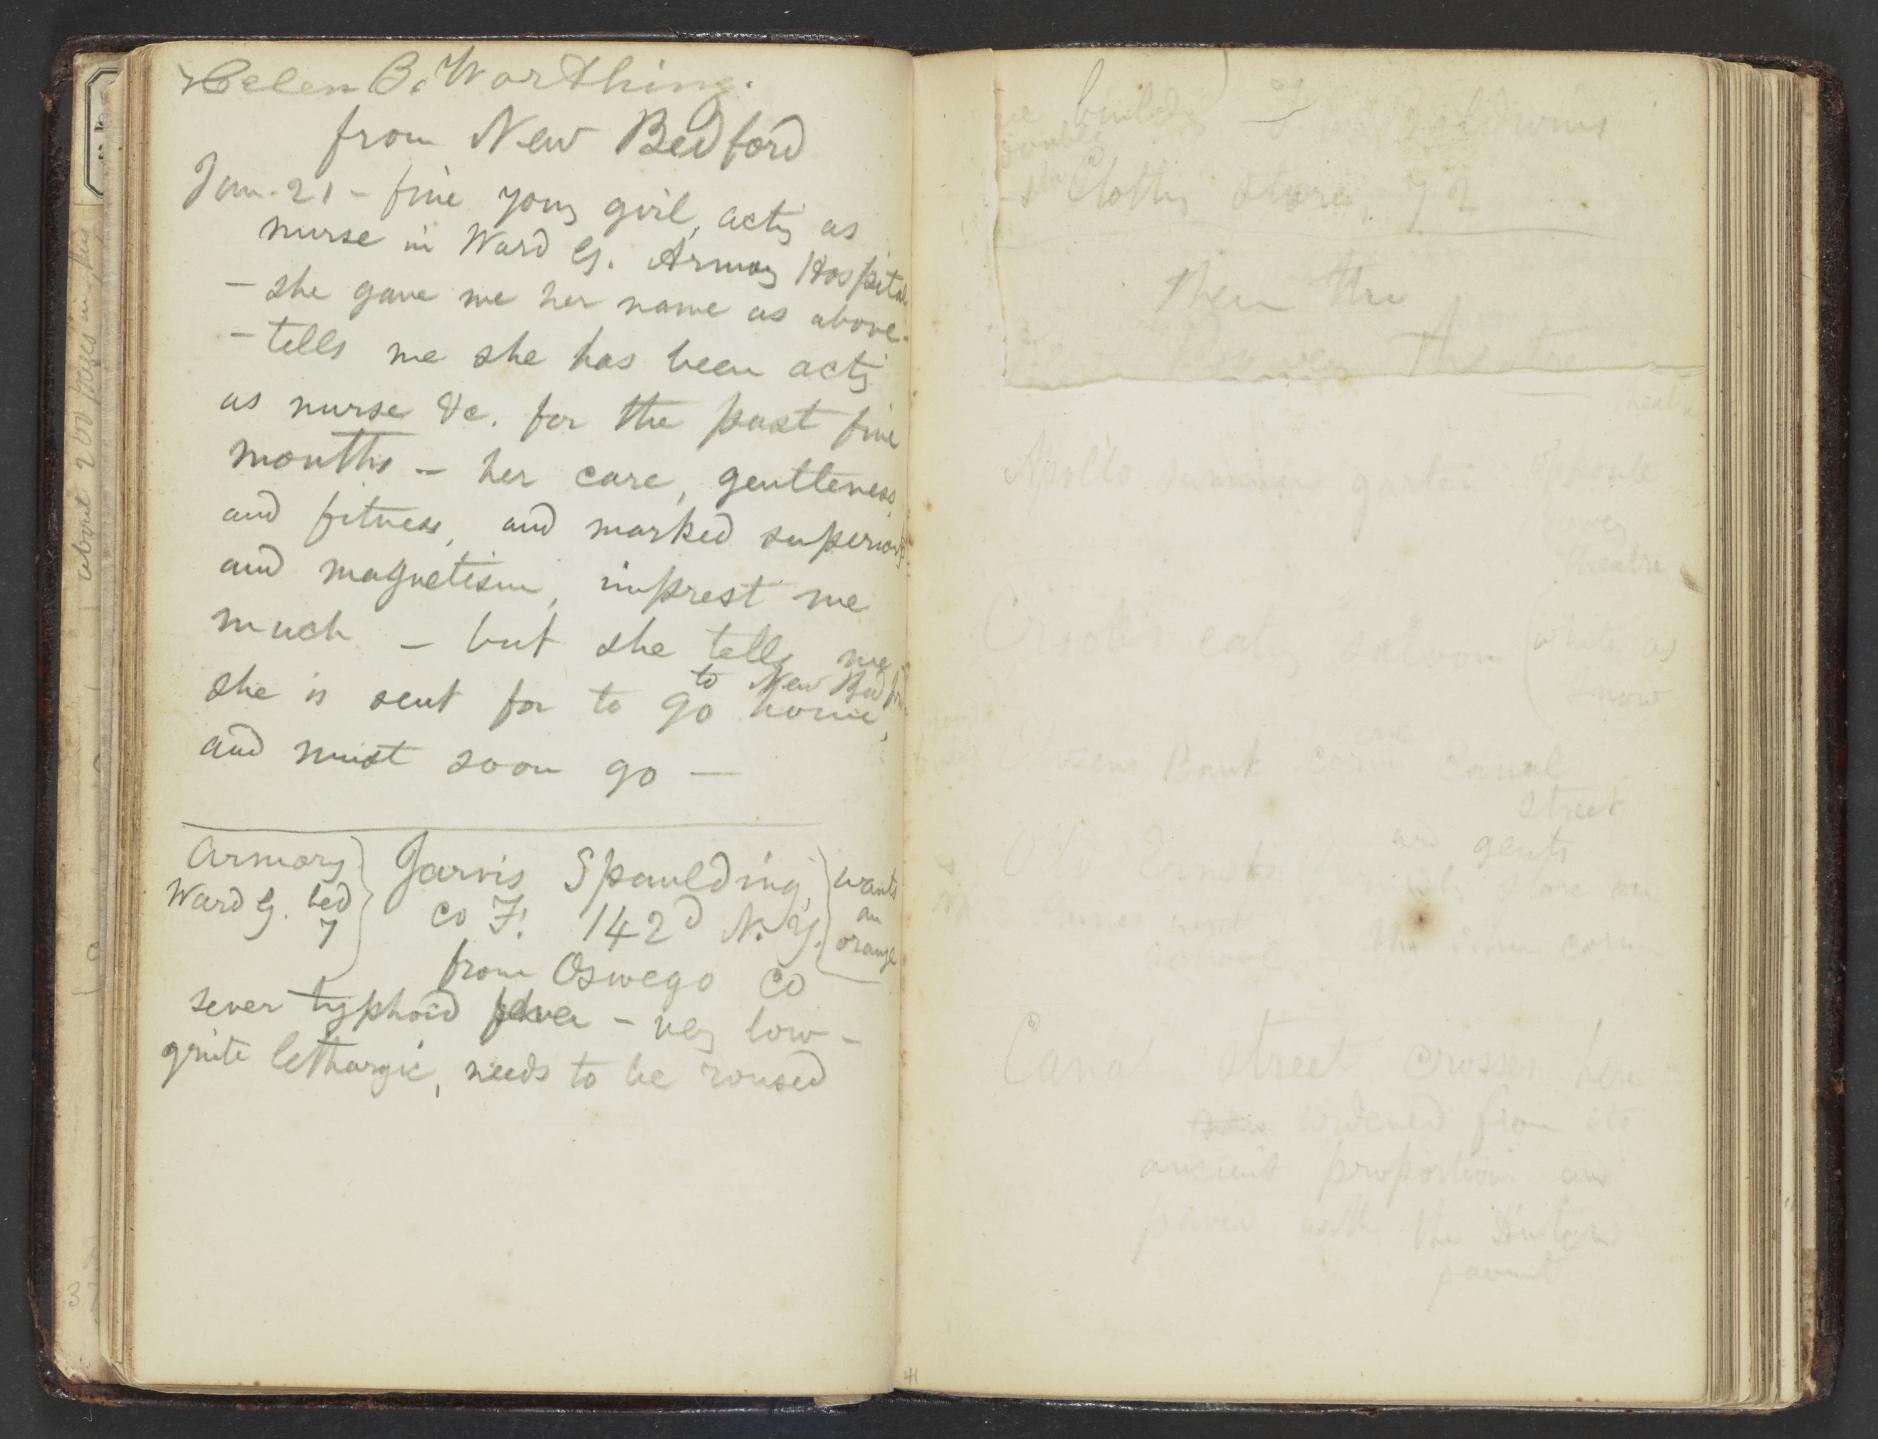 Helen B. Worthing.
from New Bedford
Jan. 21 – fine young girl, actg as
nurse in Ward G. Armory Hospital
– she gave me her name as above.
– tells me she has been actg
as nurse &c. for the past five
months – her care, gentleness,
and fitness, and marked superiority
and magnetism, imprest me
much – but she tells me
to New Bedford
she is sent for to go home,
and must soon go –
Armory
Ward G. bed
7
Jarvis Spaulding,
co F. 142d N.Y.
from Oswego Co
wants
an
orange
sever typhoid fever – very low –
quite lethargic, needs to be roused
about 200 pages in this
builds
Baldwins
double
Clothg store, 72
Then the
Theatre
Theatre
Apollo summer garten opposite
Bowery
Theatre
Crooks eatg saloon (white as
now
Citizens Bank corner Canal
one
street
Otto Ernst
and gents
store on
the
Canal street crosses here
widened from its
ancient proportions and
paved with the
pavement
41